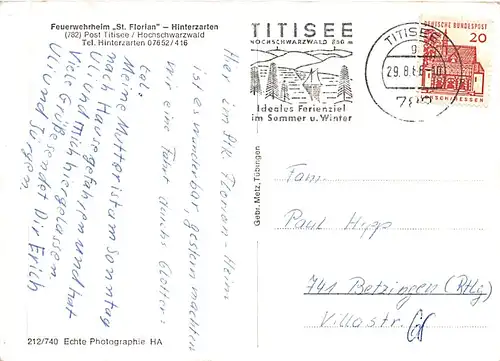 Feuerwehrheim „St. Florian" – Hinterzarten
(782) Post Titisee / Hochschwarzwald
Tel. Hinterzarten 07652 / 416
Hier im Str. Florian-Heim
ist es wunderbar, gestern machten
wir eine Fahrt durchs Glotter-
tal.
Meine Mutter ist am Sonntag
nach Hause gefahren und hat
Uli und mich hiergelassen.
Viele Grüße sendet Dir Erich
Uli und Jürgen
212/740 Echte Photographie HA
Gebr. Metz, Tübingen
TITISEE
HOCHSCHWARZWALD 850 m
Ideales Ferienziel
im Sommer u. Winter
TITISEE
g
29.8.66
DEUTSCHE BUNDESPOST
20
Fam.
Paul Hipp
741 Betzingen (Rtlg)
Villastr. 68